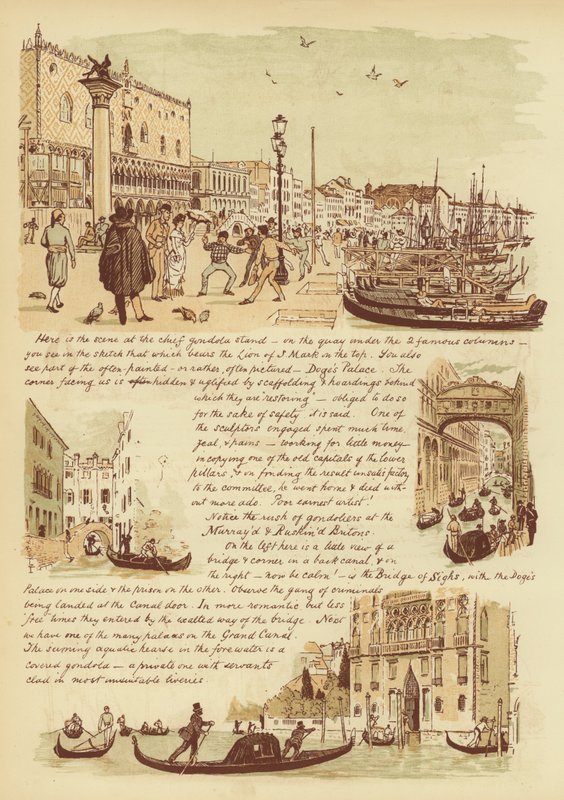 Here is the scene at the chief gondola stand — on the quay under the 2 famous columns —
you see in the sketch that which bears the Lion of St Mark on the top. You also
see part of the often-painted — or rather, often pictured — Doge's Palace. The
corner facing us is hidden & uglified by scaffolding & hoardings behind
which they are "restoring" — obliged to do so
for the sake of safety it is said. One of
the sculptors engaged spent much time,
zeal, & pains — working for little money —
in copying one of the old capitals of the lower
pillars & on finding the result unsatisfactory
to the committee, he went home & died with-
out more ado. Poor earnest artist!
Notice the rush of gondoliers at the
Murray'd & Ruskin'd Britons.
On the left here is a little view of a
bridge & corner in a back canal, & on
the right — now be calm! — is the Bridge of Sighs, with the Doge's
Palace on one side & the prison on the other. Observe the gang of criminals
being landed at the Canal door. In more romantic but less
'free' times they entered by the walled way of the bridge. Next
we have one of the many palaces on the Grand Canal.
The seeming aquatic hearse in the fore water is a
covered gondola — a private one with servants
clad in most unsuitable liveries.